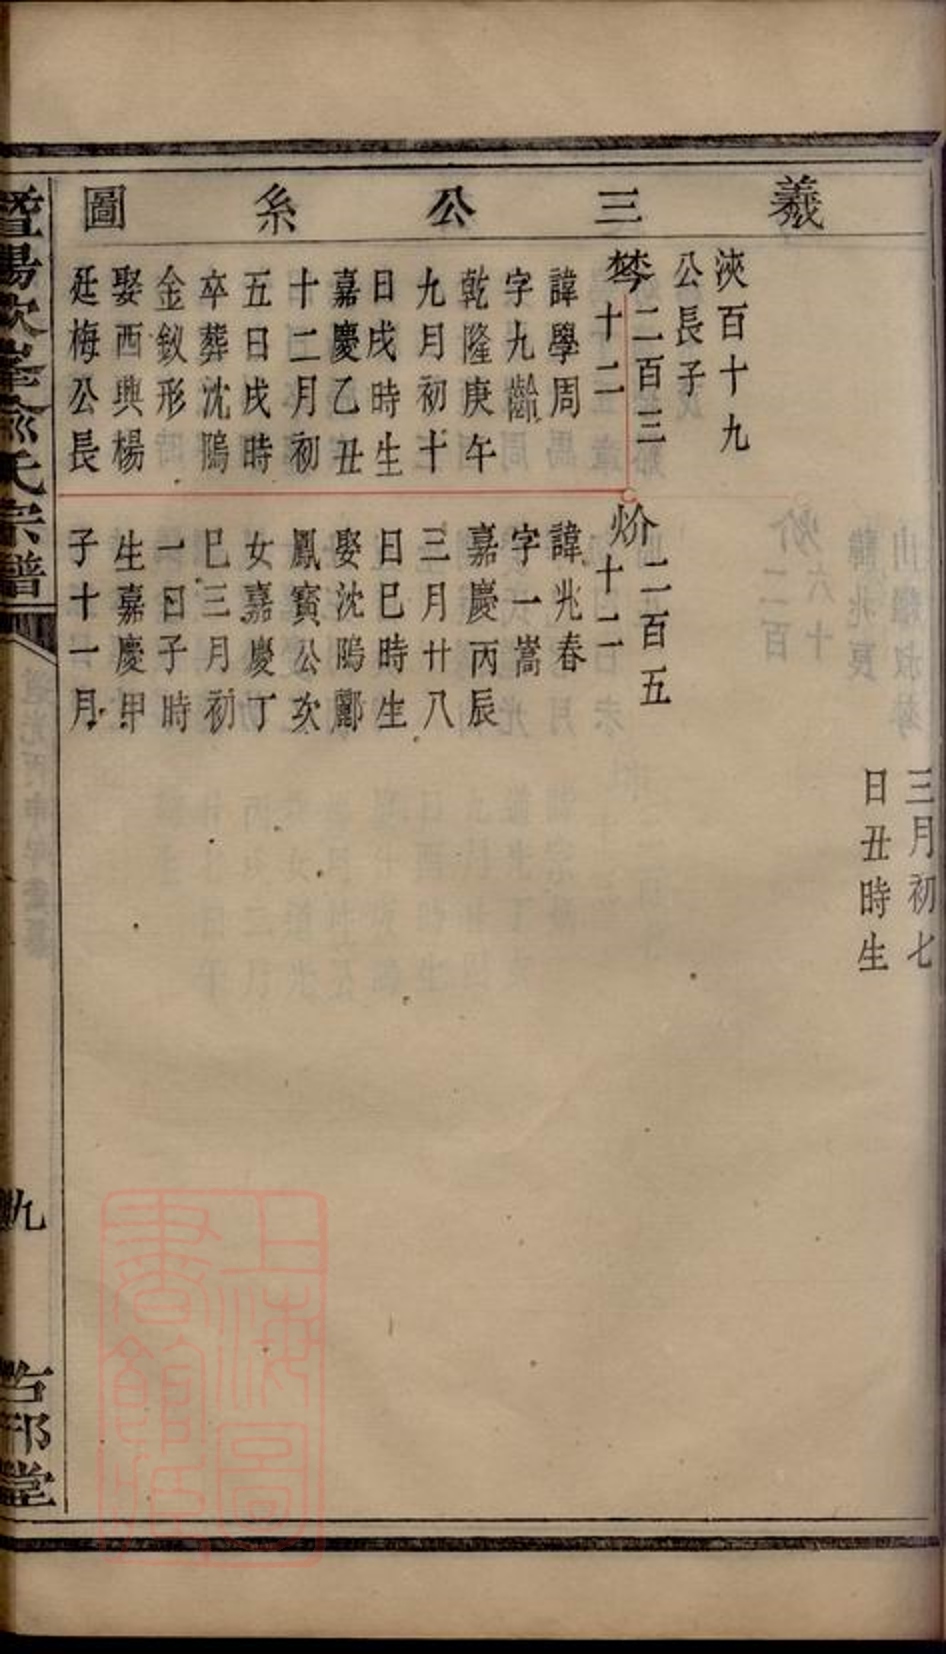 羲三公系圖
三月初七
日丑時生
浹百十九
公長子
棽二百三
十二
諱學周
字九齡
乾隆庚午
九月初十
日戌時生
嘉慶乙丑
十二月初
五日戌時
卒葬沈隝
金釵形
娶西興楊
廷梅公長
炌二百五
十二
諱兆春
字一嵩
嘉慶丙辰
三月廿八
日巳時生
娶沈隝酈
鳳寶公次
女嘉慶丁
巳三月初
一日子時
生嘉慶甲
子十一月
暨陽次峯俞氏宗譜
九
上海圖
書館藏